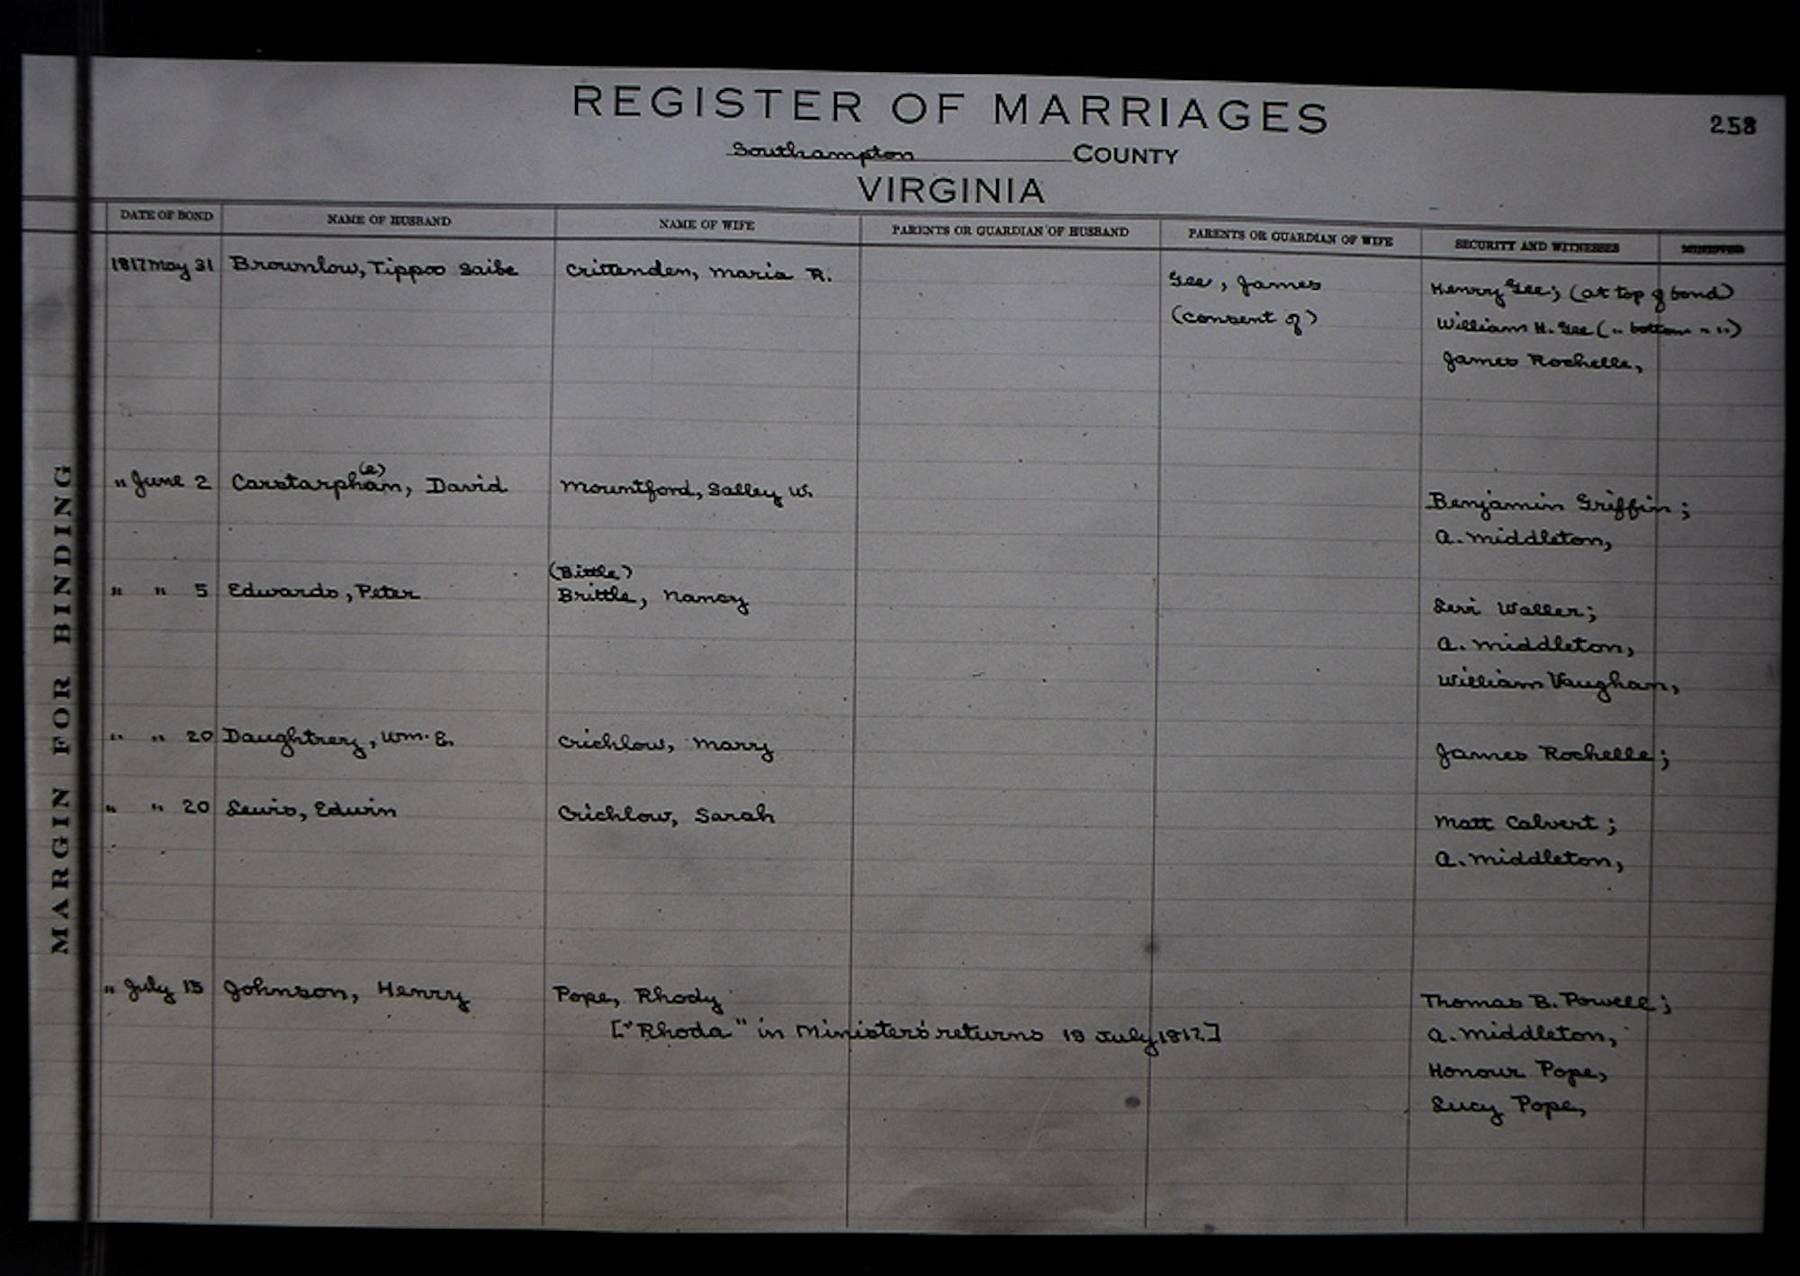 REGISTER OF MARRIAGES
258
Southampton COUNTY
VIRGINIA
DATE OF BOND NAME OF HUSBAND NAME OF WIFE PARENTS OR GUARDIAN OF HUSBAND PARENTS OR GUARDIAN OF WIFE SECURITY AND WITNESSES MINISTER
1817 May 31 Brownlow, Tippoo Saibe Crittenden, Maria R. Gee, James Henry Gee; (at top of bond)
(consent of) William H. Gee (" bottom " ")
James Rochelle,
(e)
" June 2 Carstarpham, David Mountford, Salley W. Benjamin Griffin;
A. Middleton,
(Bittle)
" " 5 Edwards, Peter Brittle, Nancy Levi Waller;
A. Middleton,
William Vaughan,
" " 20 Daughtrey, Wm. E. Crichlow, Mary James Rochelle;
" " 20 Lewis, Edwin Crichlow, Sarah Matt Calvert;
A. Middleton,
" July 15 Johnson, Henry Pope, Rhody Thomas B. Powell;
["Rhoda" in Minister's returns 19 July 1817.] A. Middleton,
Honour Pope,
Lucy Pope,
MARGIN FOR BINDING